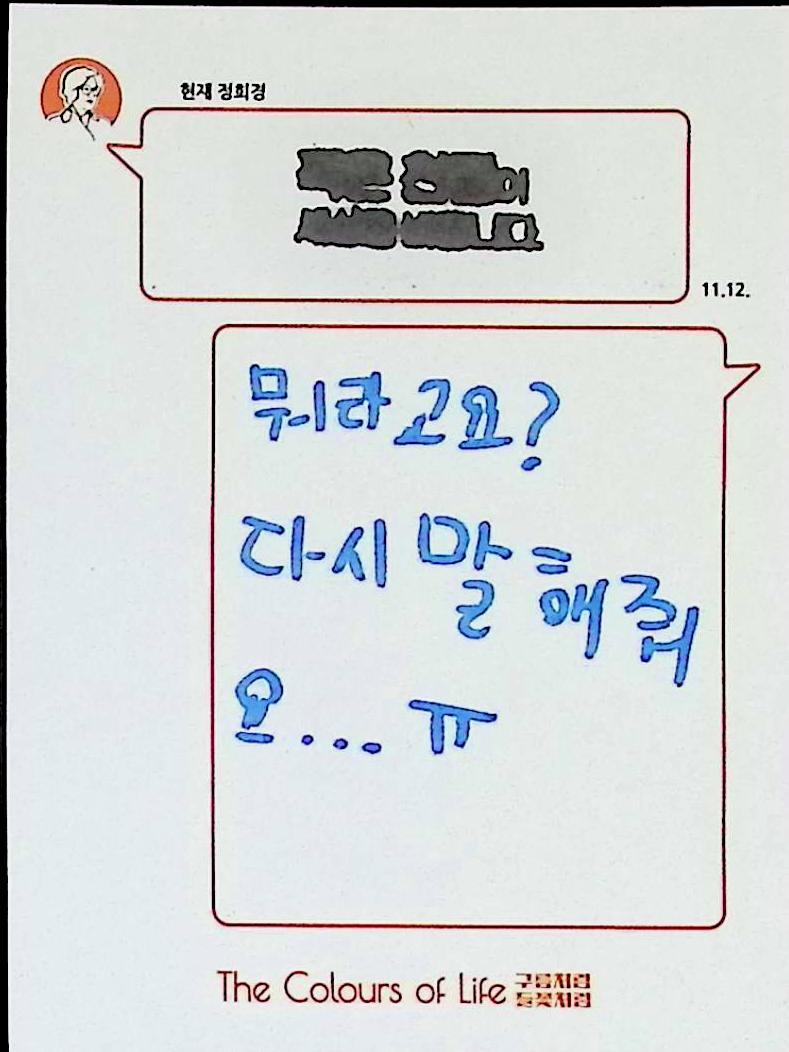 현재 정희경
11.12.
뭐라고요?
다시 말 해줘
요... ㅠ
The Colours of Life 구름처럼
들꽃처럼